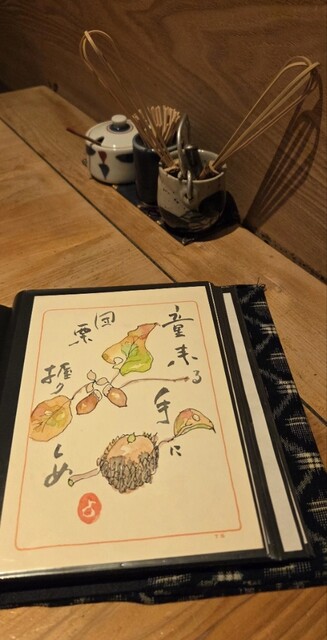 童来る
手に
団栗
握りしめ